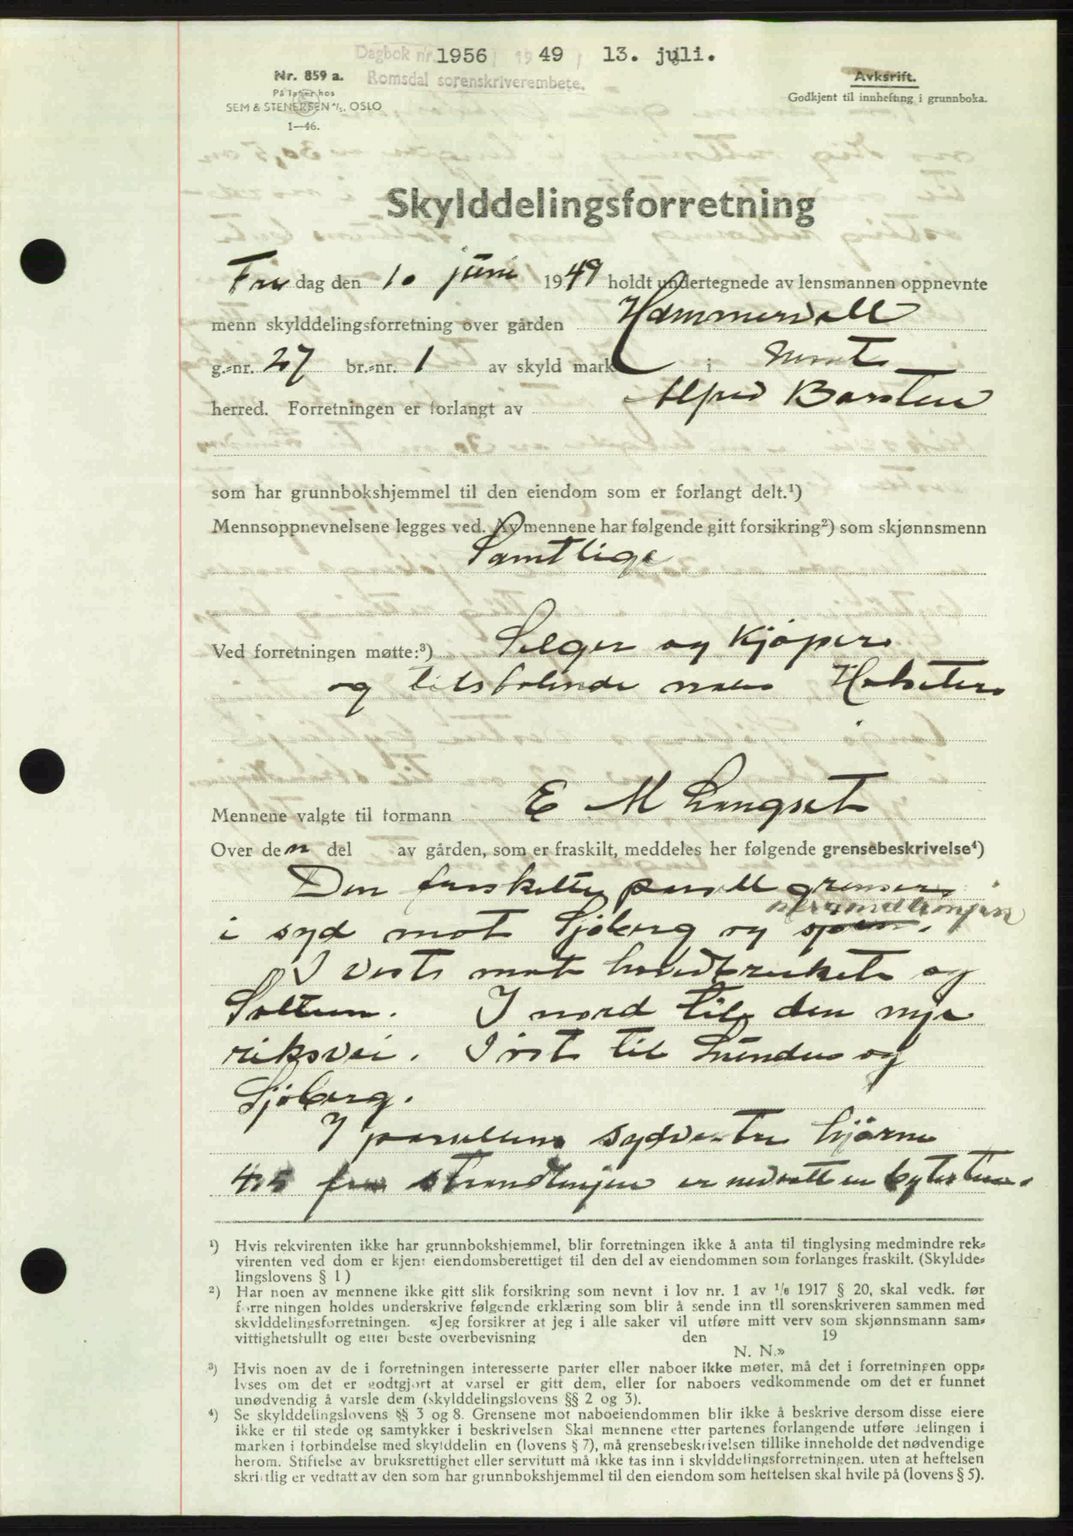 Dagbok nr. 1956 / 1949 / 13. juli.
Romsdal sorenskriverembete.
Nr. 859 a.
På lager hos
SEM & STENERSEN A/S, OSLO
1—46.
Avksrift.
Godkjent til innhefting i grunnboka.
Skylddelingsforretning
Fre dag den 10 juni 1949 holdt undertegnede av lensmannen oppnevnte
menn skylddelingsforretning over gården Hammervoll
g.-nr. 27 br.-nr. 1 av skyld mark i Nesset
herred. Forretningen er forlangt av Alfred Barsten
som har grunnbokshjemmel til den eiendom som er forlangt delt.¹)
Mennsoppnevnelsene legges ved. Av mennene har følgende gitt forsikring²) som skjønnsmenn
Samtlige
Ved forretningen møtte:³) Selger og Kjøper
og tilstøtende naboer
Mennene valgte til formann E M Langset
Over den del av gården, som er fraskilt, meddeles her følgende grensebeskrivelse⁴)
Den fraskilte parsell grenser
strandlinjen
i syd mot Sjøberg og sjøen.
I vest mot hovedbruket og
Soltun. I nord til den nye
riksvei. I øst til Lunden og
Sjøberg.
I parsellens sydvestre hjørne
4,5 fra strandlinjen er nedsatt en bytesten.
¹) Hvis rekvirenten ikke har grunnbokshjemmel, blir forretningen ikke å anta til tinglysing medmindre rek-
virenten ved dom er kjent eiendomsberettiget til den del av eiendommen som forlanges fraskilt. (Skyldde-
lingslovens § 1)
²) Har noen av mennene ikke gitt slik forsikring som nevnt i lov nr. 1 av 1/6 1917 § 20, skal vedk. før
forretningen holdes underskrive følgende erklæring som blir å sende inn til sorenskriveren sammen med
skylddelingsforretningen. «Jeg forsikrer at jeg i alle saker vil utføre mitt verv som skjønnsmann sam-
vittighetsfullt og etter beste overbevisning den 19
N. N.»
³) Hvis noen av de i forretningen interesserte parter eller naboer ikke møter, må det i forretningen opp-
lyses om det er godtgjort at varsel er gitt dem, eller for naboers vedkommende om det er funnet
unødvendig å varsle dem (skylddelingslovens §§ 2 og 3).
⁴) Se skylddelingslovens §§ 3 og 8. Grensene mot naboeiendommen blir ikke å beskrive dersom disse eiere
ikke er til stede og samtykker i beskrivelsen Skal mennene etter partenes forlangende utføre delingen i
marken i forbindelse med skylddelingen (lovens § 7), må grensebeskrivelsen tillike inneholde det nødvendige
herom. Stiftelse av bruksrettighet eller servitutt må ikke tas inn i skylddelingsforretningen. uten at heftelsen
skriftlig er vedtatt av den som har grunnbokshjemmel til den eiendom som heftelsen skal hvile på (lovens § 5).